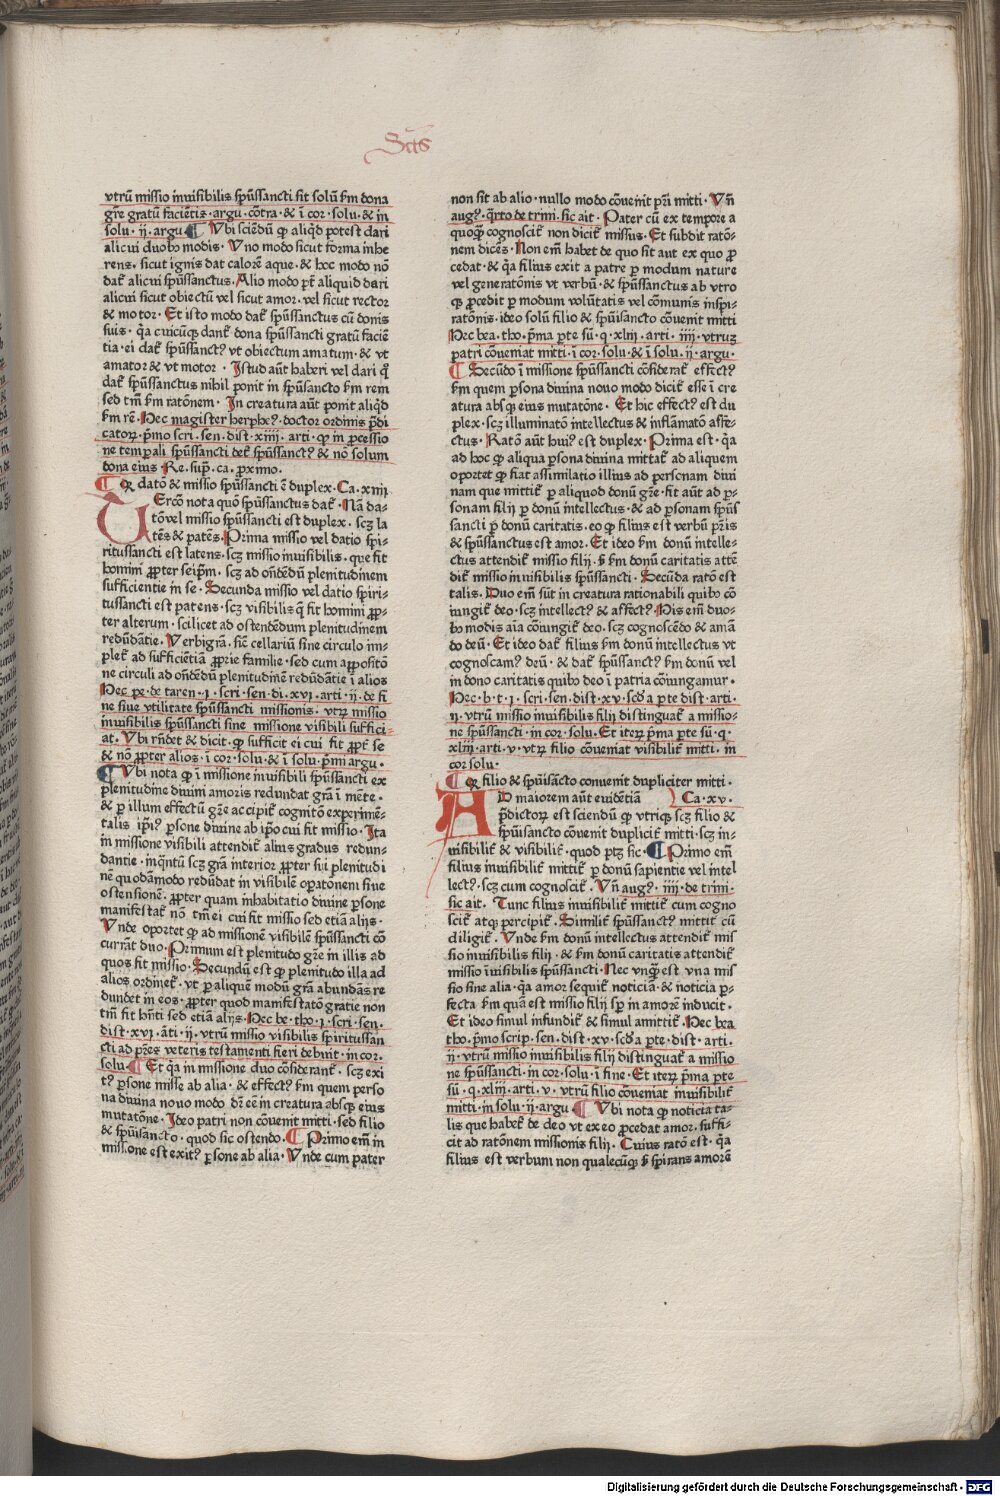 Scts
vtrū missio inuisibilis spūssancti sit solū ẜm dona
gr̄e gratū faciētis · argu · cōtra · & ī cor · solu · & in
solu · ij · argu · ¶ Vbi sciēdū ꝙ aliqd potest dari
alicui duobꝰ modis · Vno modo sicut forma inhe
rens · sicut ignis dat calorē aque · & hoc modo nō
dat᷑ alicui spūssanctus · Alio modo pt̄ aliquid dari
alicui sicut obiectū vel sicut amor · vel sicut rector
& motor · Et isto modo dat᷑ spūssanctus cū donis
suis · q̄a cuicūqꝫ dant᷑ dona spūssancti gratū faciē
tia · ei dat᷑ spūssanctꝰ vt obiectum amatum · & vt
amator & vt motor · Istud aūt haberi vel dari q̄
dat᷑ spūssanctus nihil ponit in spūsancto ẜm rem
sed tm̄ ẜm ratōnem · In creatura aūt ponit aliqd
ẜm rē · Hec magister herpheꝰ · doctor ordinis p̄di
catoꝝ · pͥmo scri · sen · dist · xiiij · arti · ꝙ in ꝓcessio
ne temꝑali spūssancti det᷑ spūssanctꝰ & nō solum
dona eius · Re · sup̄ · ca · ꝓximo ·
¶ Qꝛ datō & missio spūssancti ē duplex · Ca · xiiij
Vercō nota quō spūssanctus dat᷑ · Nā da-
tō vel missio spūssancti est duplex · scꝫ la
tēs & patēs · Prima missio vel datio spi-
ritussancti est latens · scꝫ missio inuisibilis · que fit
homini ꝓpter seipm̄ · scꝫ ad on̄dēdū plenitudinem
sufficientie in se · Secunda missio vel datio spiri-
tussancti est patens · scꝫ visibilis q̄ fit homini ꝓp-
ter alterum · scilicet ad ostendēdum plenitudinem
redūdātie · Verbigrā · sic̄ cellariū sine circulo im-
plet᷑ ad sufficiētiā ꝓprie familie · sed cum appositō
ne circuli ad on̄dendū plenitudinē redūdātie ī alios
Hec pe · de taren · i · scri · sen · di · xvi · arti · ij · de fi
ne siue vtilitate spūssancti missionis · vtꝝ missio
inuisibilis spūssancti sine missione visibili suffici-
at · Vbi rn̄det & dicit · ꝙ sufficit ei cui fit ꝓpt᷑ se
& nō ꝓpter alios · i cor · solu · & ī solu · pͥmi argu ·
¶ Vbi nota ꝙ ī missione inuisibili spūssancti ex
plenitudine diuini amoris redundat grā ī mēte ·
& ꝑ illum effectū gr̄e accipit᷑ cognitō experimē-
talis ip̄i? ꝑsone diuine ab ip̄o cui fit missio · Ita
in missione visibili attendit᷑ alius gradus redun-
dantie · inqn̄tū scꝫ grā interior ꝓpter sui plenitudi
nē quodāmodo redūdat in visibilē oꝑatonem siue
ostensionē · ꝓpter quam inhabitatio diuine ꝑsone
manifestat᷑ nō tm̄ ei cui fit missio sed etiā alijs ·
Vnde oportet ꝙ ad missionē visibilē spūssancti cō
currāt duo · Primum est plenitudo gr̄e in illis ad
quos fit missio · Secundū est ꝙ plenitudo illa ad
alios ordinet᷑ · vt ꝑ aliquē modū grā abundās re
dundet in eos · ꝓpter quod manifestatō gratie non
tm̄ fit hn̄ti sed etiā alijs · Hec be · tho · i · scri · sen ·
dist · xvi · ar̄ti · ij · vtrū missio visibilis spiritussan
cti ad pr̄es veteris testamenti fieri debuit · in cor ·
solu · ¶ Et q̄a in missione duo cōsiderant᷑ · scꝫ exi
tꝰ ꝑsone misse ab alia · & effectꝰ ẜm quem perso
na diuina nouo modo dr̄ eē in creatura absqꝫ eius
mutatōne · Ideo patri non cōuenit mitti · sed filio
& spūisancto · quod sic ostendo · ¶ Primo em̄ in
missione est exitꝰ ꝑsone ab alia · Vnde cum pater
non sit ab alio · nullo modo cōuenit pr̄i mitti · Vn̄
augꝰ · qͣrto de trini · sic ait · Pater cū ex tempore a
quoqͣ cognoscit᷑ non dicit᷑ missus · Et subdit ratō-
nem dicēs · Non em̄ habet de quo sit aut ex quo ꝓ
cedat · & q̄a filius exit a patre ꝑ modum nature
vel generatōnis vt verbū · & spūssanctus ab vtro
qꝫ ꝓcedit ꝑ modum volūtatis vel cōmunis inspi-
ratōnis · ideo solū filio & spūisancto cōuenit mitti
Hec bea · tho · pͥma ꝑte sū · q · xliij · arti · iiij · vtruꝫ
patri cōueniat mitti · ī cor · solu · & ī solu · ij · argu ·
¶ Secūdo ī missione spūssancti cōsiderat᷑ effectꝰ
ẜm quem ꝑsona diuina nouo modo dicit᷑ esse ī cre
atura absqꝫ eius mutatōne · Et hic effectꝰ est du
plex · scꝫ illuminatō intellectus & inflamatō affe-
ctus · Ratō aūt huiꝰ est duplex · Prima est · q̄a
ad hoc ꝙ aliqua ꝑsona diuina mittat᷑ ad aliquem
oportet ꝙ fiat assimilatio illius ad personam diui
nam que mittit᷑ ꝑ aliquod donū gr̄e · fit aūt ad ꝑ-
sonam filij ꝑ donū intellectus · & ad ꝑsonam spūs
sancti ꝑ donū caritatis · eo ꝙ filius est verbū pr̄is
& spūssanctus est amor · Et ideo ẜm donū intelle-
ctus attendit᷑ missio filij · & ẜm donū caritatis attē
dit᷑ missio inuisibilis spūssancti · Secūda ratō est
talis · Duo em̄ sūt in creatura rationabili quibꝰ cō
iungit᷑ deo · scꝫ intellectꝰ & affectꝰ · His em̄ duo-
bꝰ modis aīa cōiungit᷑ deo · scꝫ cognoscēdo & amā
do deū · Et ideo dat᷑ filius ẜm donū intellectus vt
cognoscamꝰ deū · & dat᷑ spūssanctꝰ ẜm donū vel
in dono caritatis quibꝰ deo ī patria cōiungamur ·
Hec · b · t · i · scri · sen · dist · xv · scd̄a ꝑte dist · arti ·
ij · vtrū missio inuisibilis filij distinguat᷑ a missio-
ne spūssancti · in cor · solu · Et iteꝝ pͥma ꝑte sū · q ·
xliij · arti · v · vtꝝ filio cōueniat visibilit᷑ mitti · in
cor solu ·
¶ Qꝛ filio & spūisācto conuenit dupliciter mitti ·
AD maiorem aūt euidētiā Ca · xv ·
p̄dictoꝝ est sciendū ꝙ vtriqꝫ scꝫ filio &
spūisancto cōuenit duplicit᷑ mitti · scꝫ in-
uisibilit᷑ & visibilit᷑ · quod ptꝫ sic · ¶ Primo em̄
filius inuisibilit᷑ mittit᷑ ꝑ donū sapientie vel intel
lectꝰ · scꝫ cum cognoscit᷑ · Vn̄ augꝰ · iiij · de trini ·
sic ait · Tunc filius inuisibilit᷑ mittit᷑ cum cogno
scit᷑ atqꝫ percipit᷑ · Similit᷑ spūssanctꝰ mittit᷑ cū
diligit᷑ · Vnde ẜm donū intellectus attendit᷑ mis
sio inuisibilis filij · & ẜm donū caritatis attendit᷑
missio īuisibilis spūssancti · Nec vnqͣ est vna mis
sio sine alia · q̄a amor sequit᷑ noticiā · & noticia ꝑ-
fecta ẜm quā est missio filij sꝑ in amorē inducit ·
Et ideo simul infundit᷑ & simul amittit᷑ · Hec bea
tho · pͥmo scrip · sen · dist · xv · scd̄a ꝑte · dist · arti ·
ij · vtrū missio inuisibilis filij distinguat᷑ a missio
ne spūssancti · in cor · solu · ī fine · Et iteꝝ pͥma ꝑte
sū · q · xliij · arti · v · vtrū filio cōueniat inuisibilit᷑
mitti · in solu · ij · argu ¶ Vbi nota ꝙ noticia ta-
lis que habet᷑ de deo vt ex eo ꝓcedat amor · suffi-
cit ad ratōnem missionis filij · Cuius ratō est · q̄a
filius est verbum non qualecūqꝫ s̄ spirans amorē
Digitalisierung gefördert durch die Deutsche Forschungsgemeinschaft - DFG